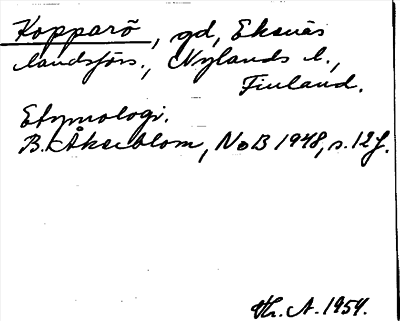 Kopparö, gd, Ekenäs
landsförs., Nylands l.,
Finland.
Etymologi.
B. Åkerblom, NoB 1948, s. 12f.
Th. A. 1959.